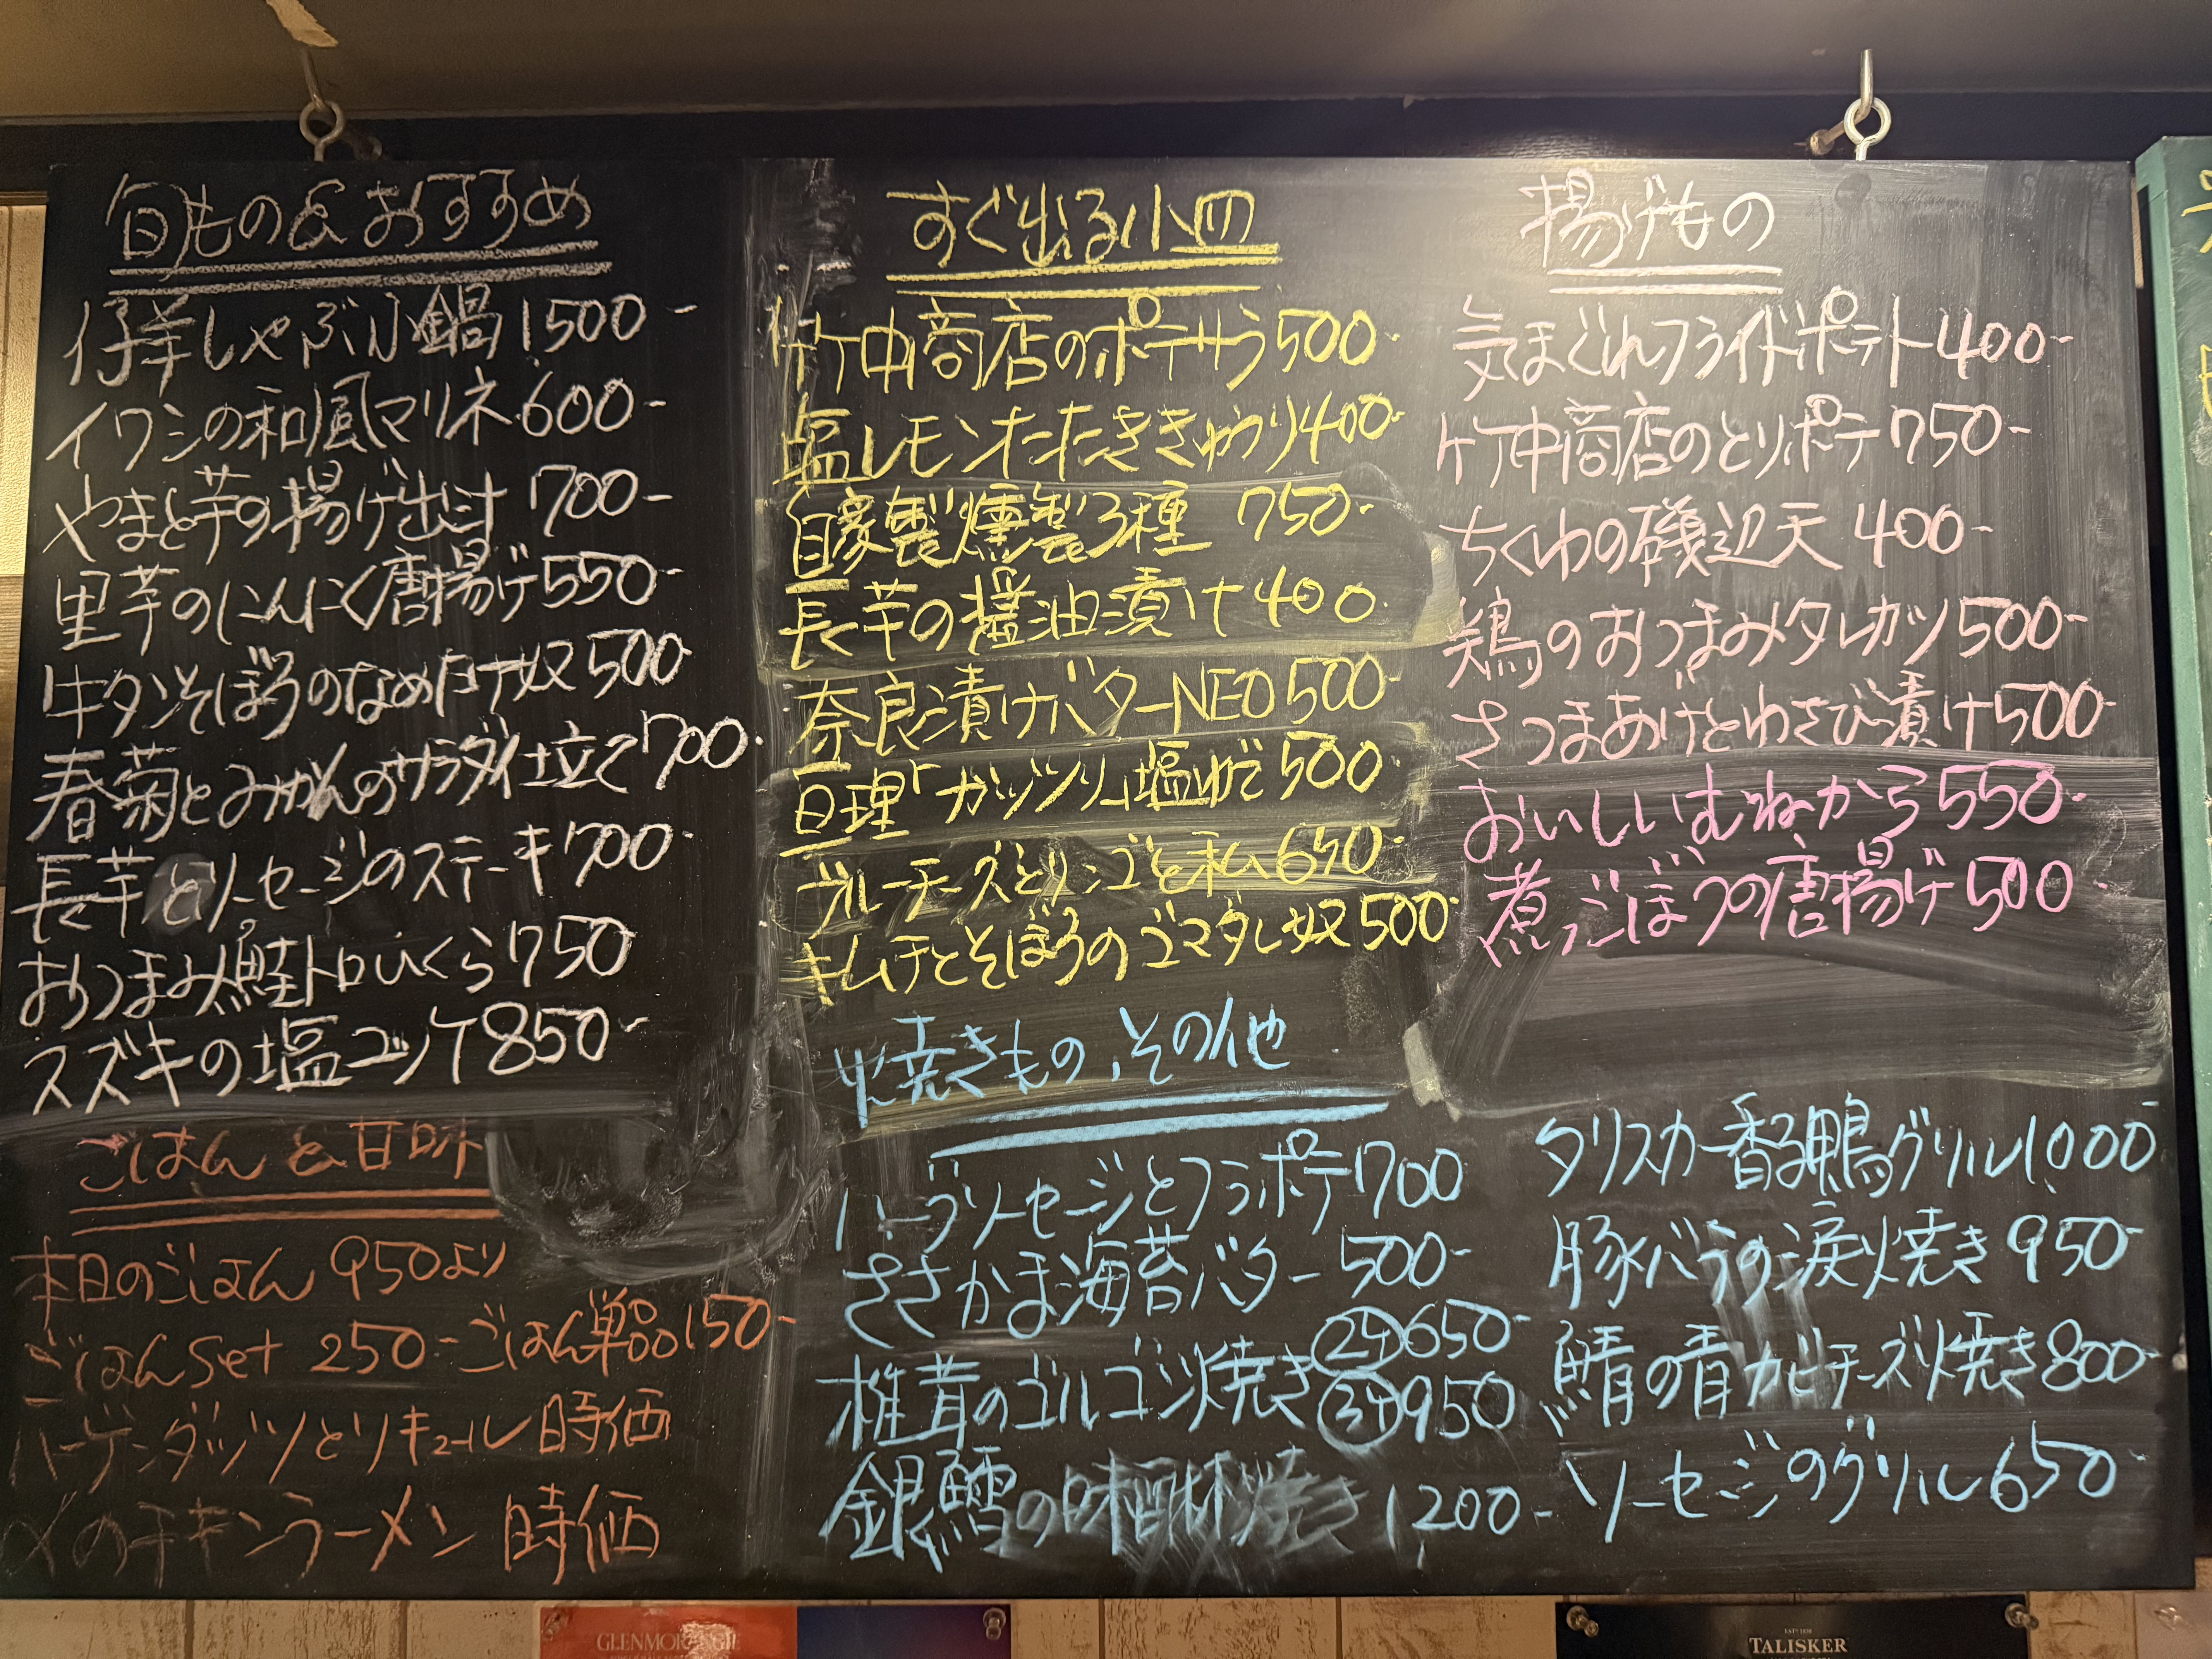 旬もの&おすすめ
仔羊しゃぶ小鍋 1,500-
イワシの和風マリネ 600-
やまと芋の揚げ出汁 700-
里芋のにんにく唐揚げ 550-
牛タンそぼろのなめ茸奴 500
春菊とみかんのサラダ仕立て 700-
長芋とソーセージのステーキ 700-
おつまみ鮭トロいくら 750
スズキの塩ユッケ 850-
ごはん&甘味
本日のごはん 950より
ごはんset 250- ごはん単品150-
ハーゲンダッツとリキュール 時価
〆のチキンラーメン 時価
すぐ出る小皿
竹中商店のポテサラ 500-
塩レモンたたききゅうり 400-
自家製燻製3種 750-
長芋の醤油漬け 400-
奈良漬けバターNEO 500-
亘理「ガッツリ」塩ゆで 500-
ブルーチーズとリンゴと私 650-
キムチとそぼろのゴマダレ奴 500-
焼きもの、その他
ハーブソーセージとフラポテ 700
ささかま海苔バター 500-
椎茸のゴルゴンゾ焼き ②ケ 650-
③ケ 950
銀鱈の味醂焼き 1,200-
揚げもの
気まぐれフライドポテト 400-
竹中商店のとりポテ 750-
ちくわの磯辺天 400-
鶏のおつまみタレカツ 500-
さつまあげとわさび漬け 500-
おいしいむねから 550-
煮ごぼうの唐揚げ 500-
タリスカー香る鴨グリル 1,000-
豚バラの涙焼き 950-
鯖の青カビチーズ焼き 800-
ソーセージのグリル 650-
GLENMORANGIE
TALISKER